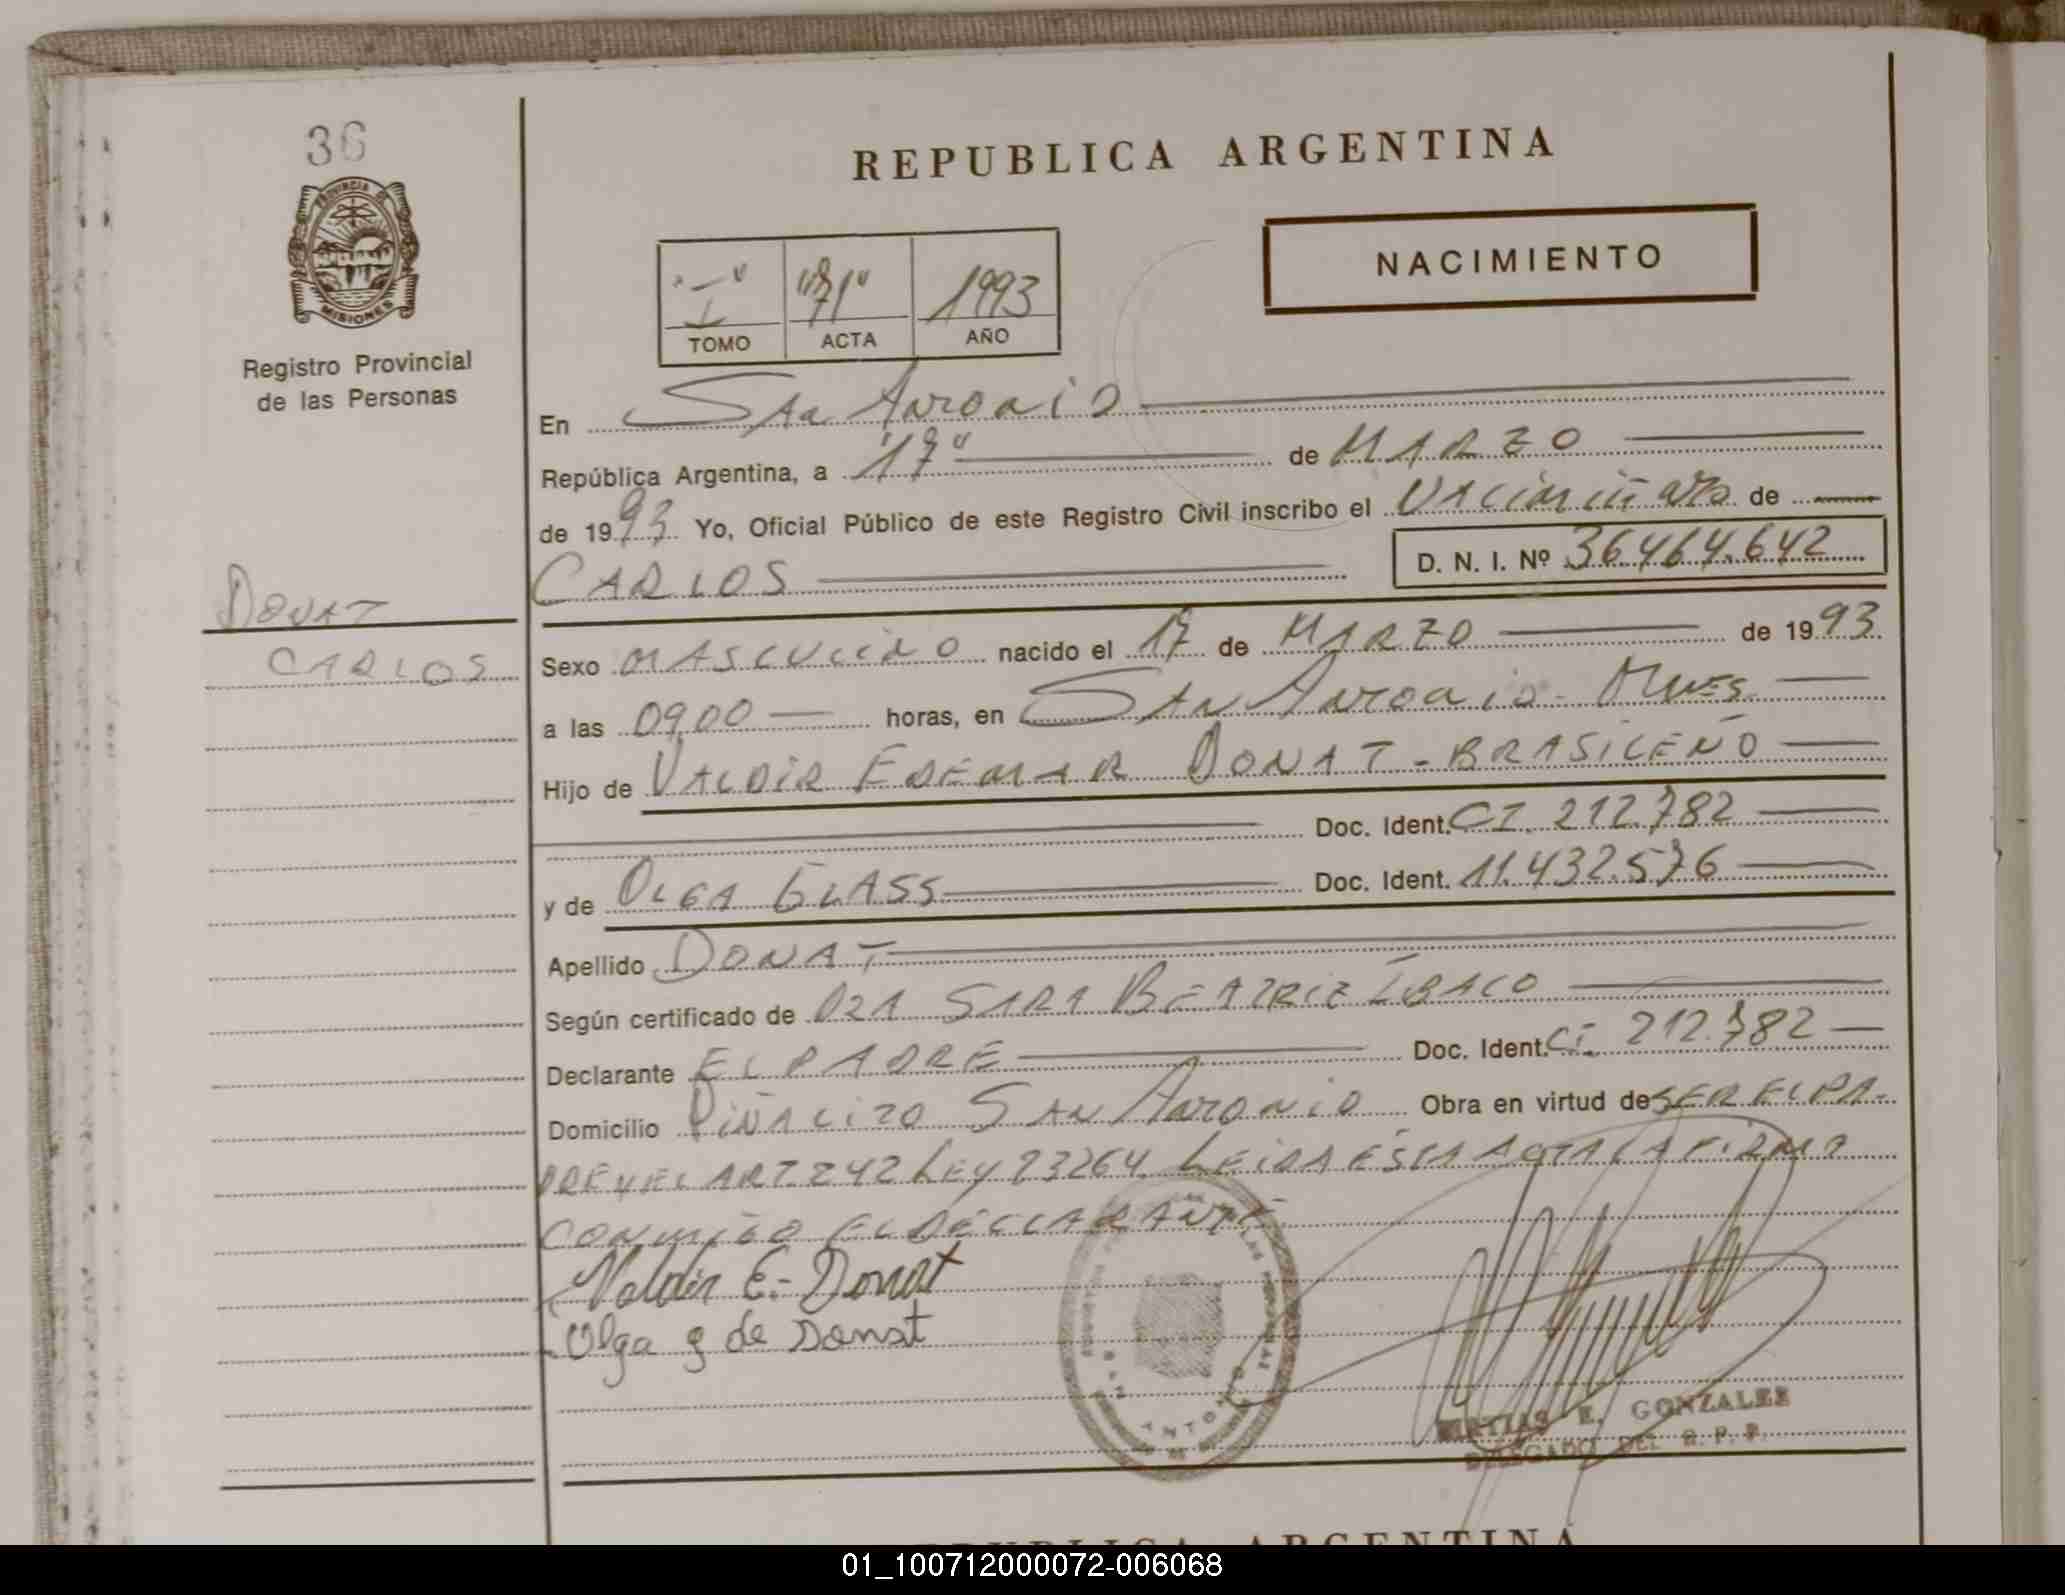 36
PROVINCIA DE
MISIONES
Registro Provincial
de las Personas
DONAT
CARLOS
REPUBLICA ARGENTINA
NACIMIENTO
"I" "71" 1993
TOMO ACTA AÑO
En San Antonio
República Argentina, a "17" de MARZO
de 1993 Yo, Oficial Público de este Registro Civil inscribo el Nacimiento de
CARLOS D. N. I. Nº 36.464.642
Sexo MASCULINO nacido el 17 de MARZO de 1993
a las 09,00 horas, en San Antonio - Mnes.
Hijo de VALDIR EDEMAR DONAT - BRASILEÑO
Doc. Ident. CI. 212.782
y de OLGA GLASS Doc. Ident. 11.432.576
Apellido DONAT
Según certificado de DRA SARA BEATRIZ IBACO
Declarante EL PADRE Doc. Ident. CI. 212.782
Domicilio PIÑALITO SAN ANTONIO Obra en virtud de SER EL PA-
DRE Y EL ART 242 LEY 23264. LEIDA ESTA ACTA LA FIRMA
CONMIGO EL DECLARANTE
Valdir E. Donat
Olga g de Donat
SAN ANTONIO
MATIAS E. GONZALEZ
DELEGADO DEL R. P. P.
REPUBLICA ARGENTINA
01_100712000072-006068